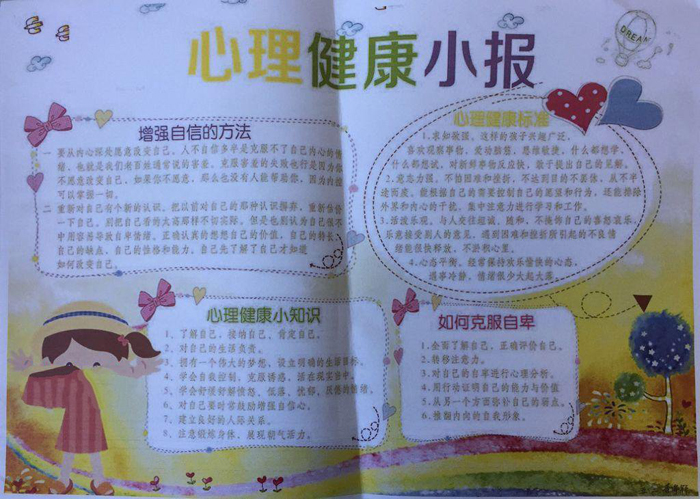 心理健康小报
DREAM
增强自信的方法
一 要从内心深处愿意改变自己。人不自信多半是克服不了自己内心的障
碍。也就是我们老百姓通常说的害羞。克服害羞的失败也许是因为你
不愿意改变自己。如果你不愿意，那么也没有人能帮助你。因为内因
可以掌握一切。
二 重新对自己有个新的认识。把以前对自己的那种认识摒弃，重新估价
一下自己。别把自己看的太高那样不切实际。但是也别认为自己很不
中用容易导致自卑情绪。正确认真的想想自己的价值。自己的特长，
自己的缺点。自己的性格和能力。自己先了解了自己才知道
如何改变自己。
心理健康标准
1.求知欲强。这样的孩子兴趣广泛，
喜欢观察事物，爱动脑筋，思维敏捷，什么都想学，
什么都想试，对新鲜事物反应快，敢于提出自己的见解。
2.意志力强。不怕困难和挫折，不达到目的不罢休，从不半
途而废。能根据自己的需要控制自己的愿望和行为，还能排除
外界和内心的干扰，集中注意力进行学习和工作。
3.活泼乐观。与人交往坦诚、随和，不掩饰自己的喜怒哀乐，
乐意接受别人的意见。遇到困难和挫折所引起的不良情
绪能很快释放，不沥积心里。
4.心态平衡。经常保持欢乐愉快的心态。
遇事冷静，情绪很少大起大落。
心理健康小知识
1、了解自己，接纳自己，肯定自己。
2、对自己的生活负责。
3、拥有一个伟大的梦想，设立明确的生活目标。
4、学会自我控制，克服诱惑，活在现实当中。
5、学会舒缓舒解愤怒、低落、忧抑、厌倦的情绪。
6、对自己要时常鼓励增强自信心。
7、建立良好的人际关系。
8、注意锻炼身体，展现朝气活力。
如何克服自卑
1.全面了解自己，正确评价自己。
2.转移注意力。
3.对自己的自卑进行心理分析。
4.用行动证明自己的能力与价值
5.从另一个方面弥补自己的弱点。
6.推翻内向的自我形象。